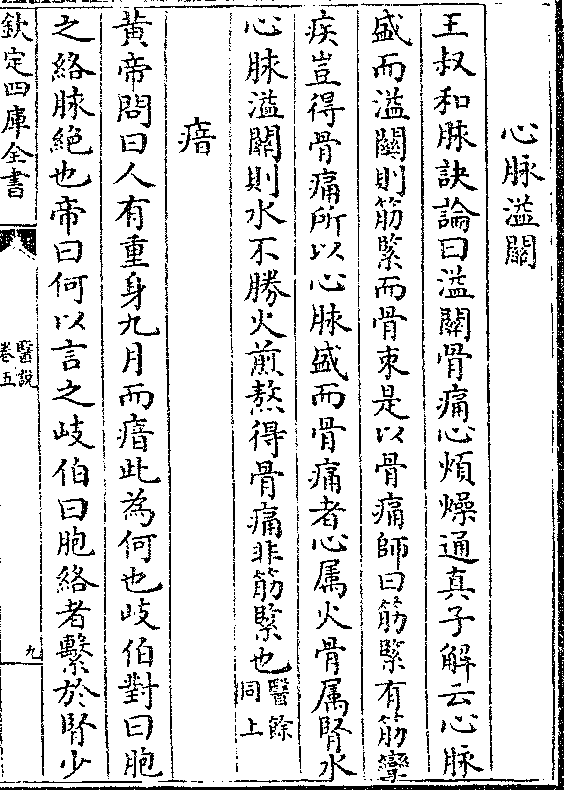 心脉溢關
王叔和脉訣論曰溢關骨痛心煩燥通真子解云心脉
盛而溢關則筋緊而骨束是以骨痛師曰筋緊有筋攣
疾豈得骨痛所以心脉盛而骨痛者心属火骨属腎水
心脉溢關則水不勝火煎熬得骨痛非筋緊也醫餘同上
瘖
黃帝問曰人有重身九月而瘖此為何也岐伯對曰胞
之絡脉絶也帝曰何以言之岐伯曰胞絡者繫於腎少
欽定四庫全書
醫說
卷五
九